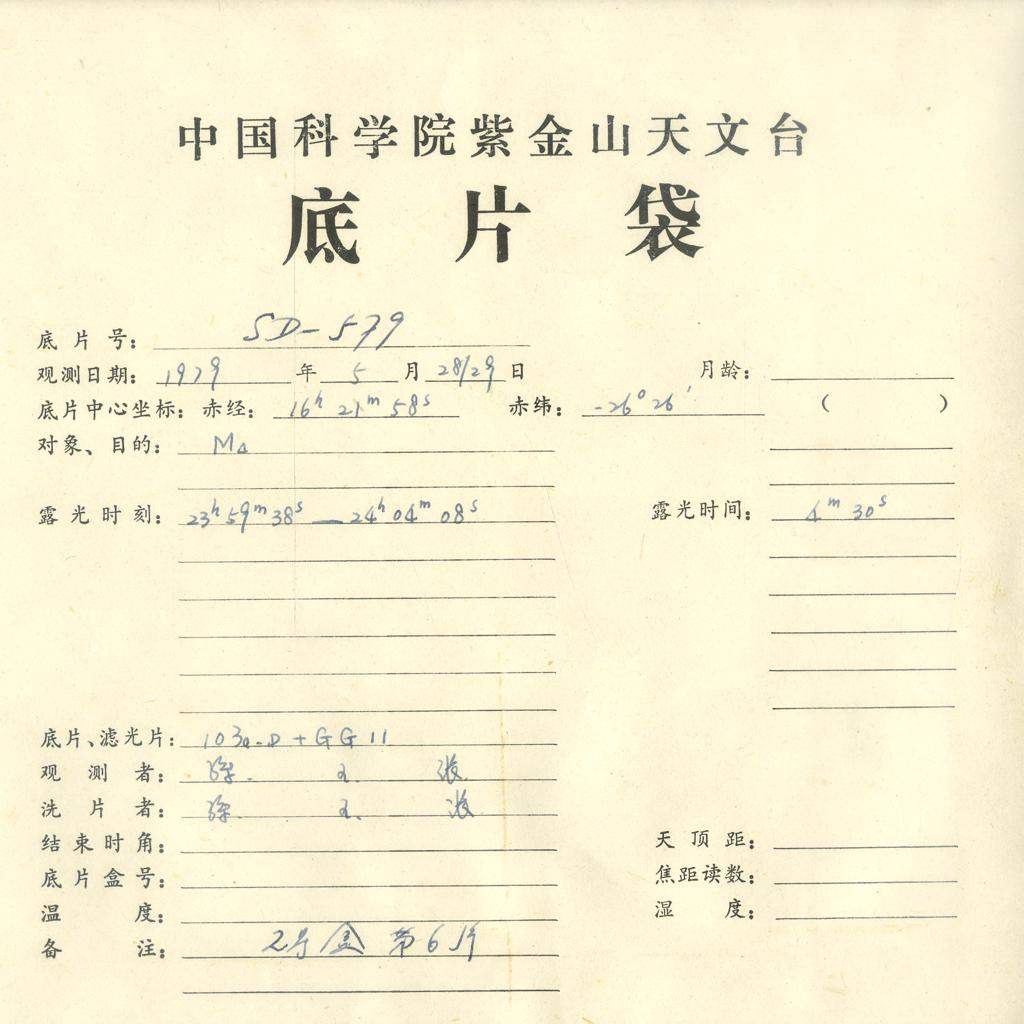 中国科学院紫金山天文台
底片袋
底片号: SD-579
观测日期: 1979年5月28/29日 月龄:
底片中心坐标: 赤经: 16h 21m 58s 赤纬: -26°26′ ( )
对象、目的: M4
露光时刻: 23h 59m 38s — 24h 04m 08s 露光时间: 4m 30s
底片、滤光片: 103a-D + GG 11
观测者: 王. 张.
洗片者: 王. 张
结束时角: 天顶距:
底片盒号: 焦距读数:
温度: 湿度:
备注: 2号盒 第6片